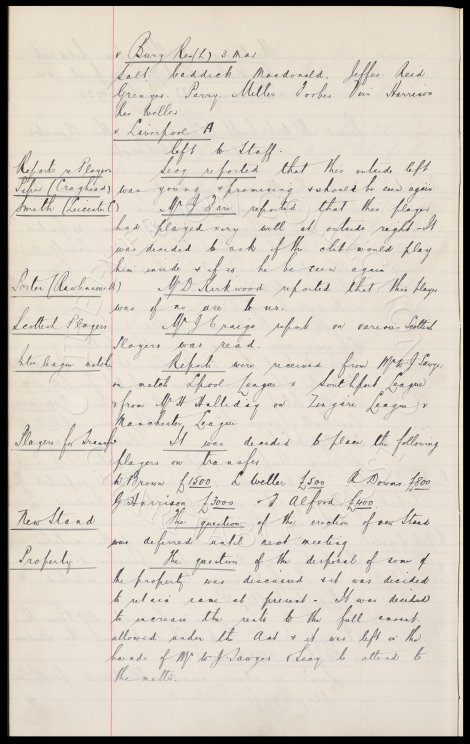 v Bury Res (L) 3 Mar
Salt. Caddick Macdonald. Jeffs Reid
Grenyer. Parry. Miller. Forbes Harrison
Res Weller
v Liverpool A
left to Staff.
Reports re Players Secy reported that this outside left
(Craghead) was young & promising & should be seen again
Smith (Leicester C) Mr J Fare reported that this player
had played very well at outside right - It
was decided to ask if the club would play
him inside & if so he be seen again
Mr D Kirkwood reported that this player
was of no use to us.
Scottish Players Mr J Craigs report on various Scottish
Players was read.
Inter league match Reports were received from Mr W J Sawyer
on match Lpool League v Southport League
& from Mr H Halliday on Zingari League v
Manchester League
Players for Transfer It was decided to place the following
players on transfer
W Brown £1500 L Weller £500 R Downs £800
G Harrison £3000 & F Alford £400.
New Stand The question of the erection of new Stand
was deferred until next meeting
Property The question of the disposal of some of
the property was discussed & it was decided
to retain same at present - It was decided
to increase the rents to the full amount
allowed under the Act & it was left in the
hands of Mr W J Sawyer & Secy to attend to
the matter.